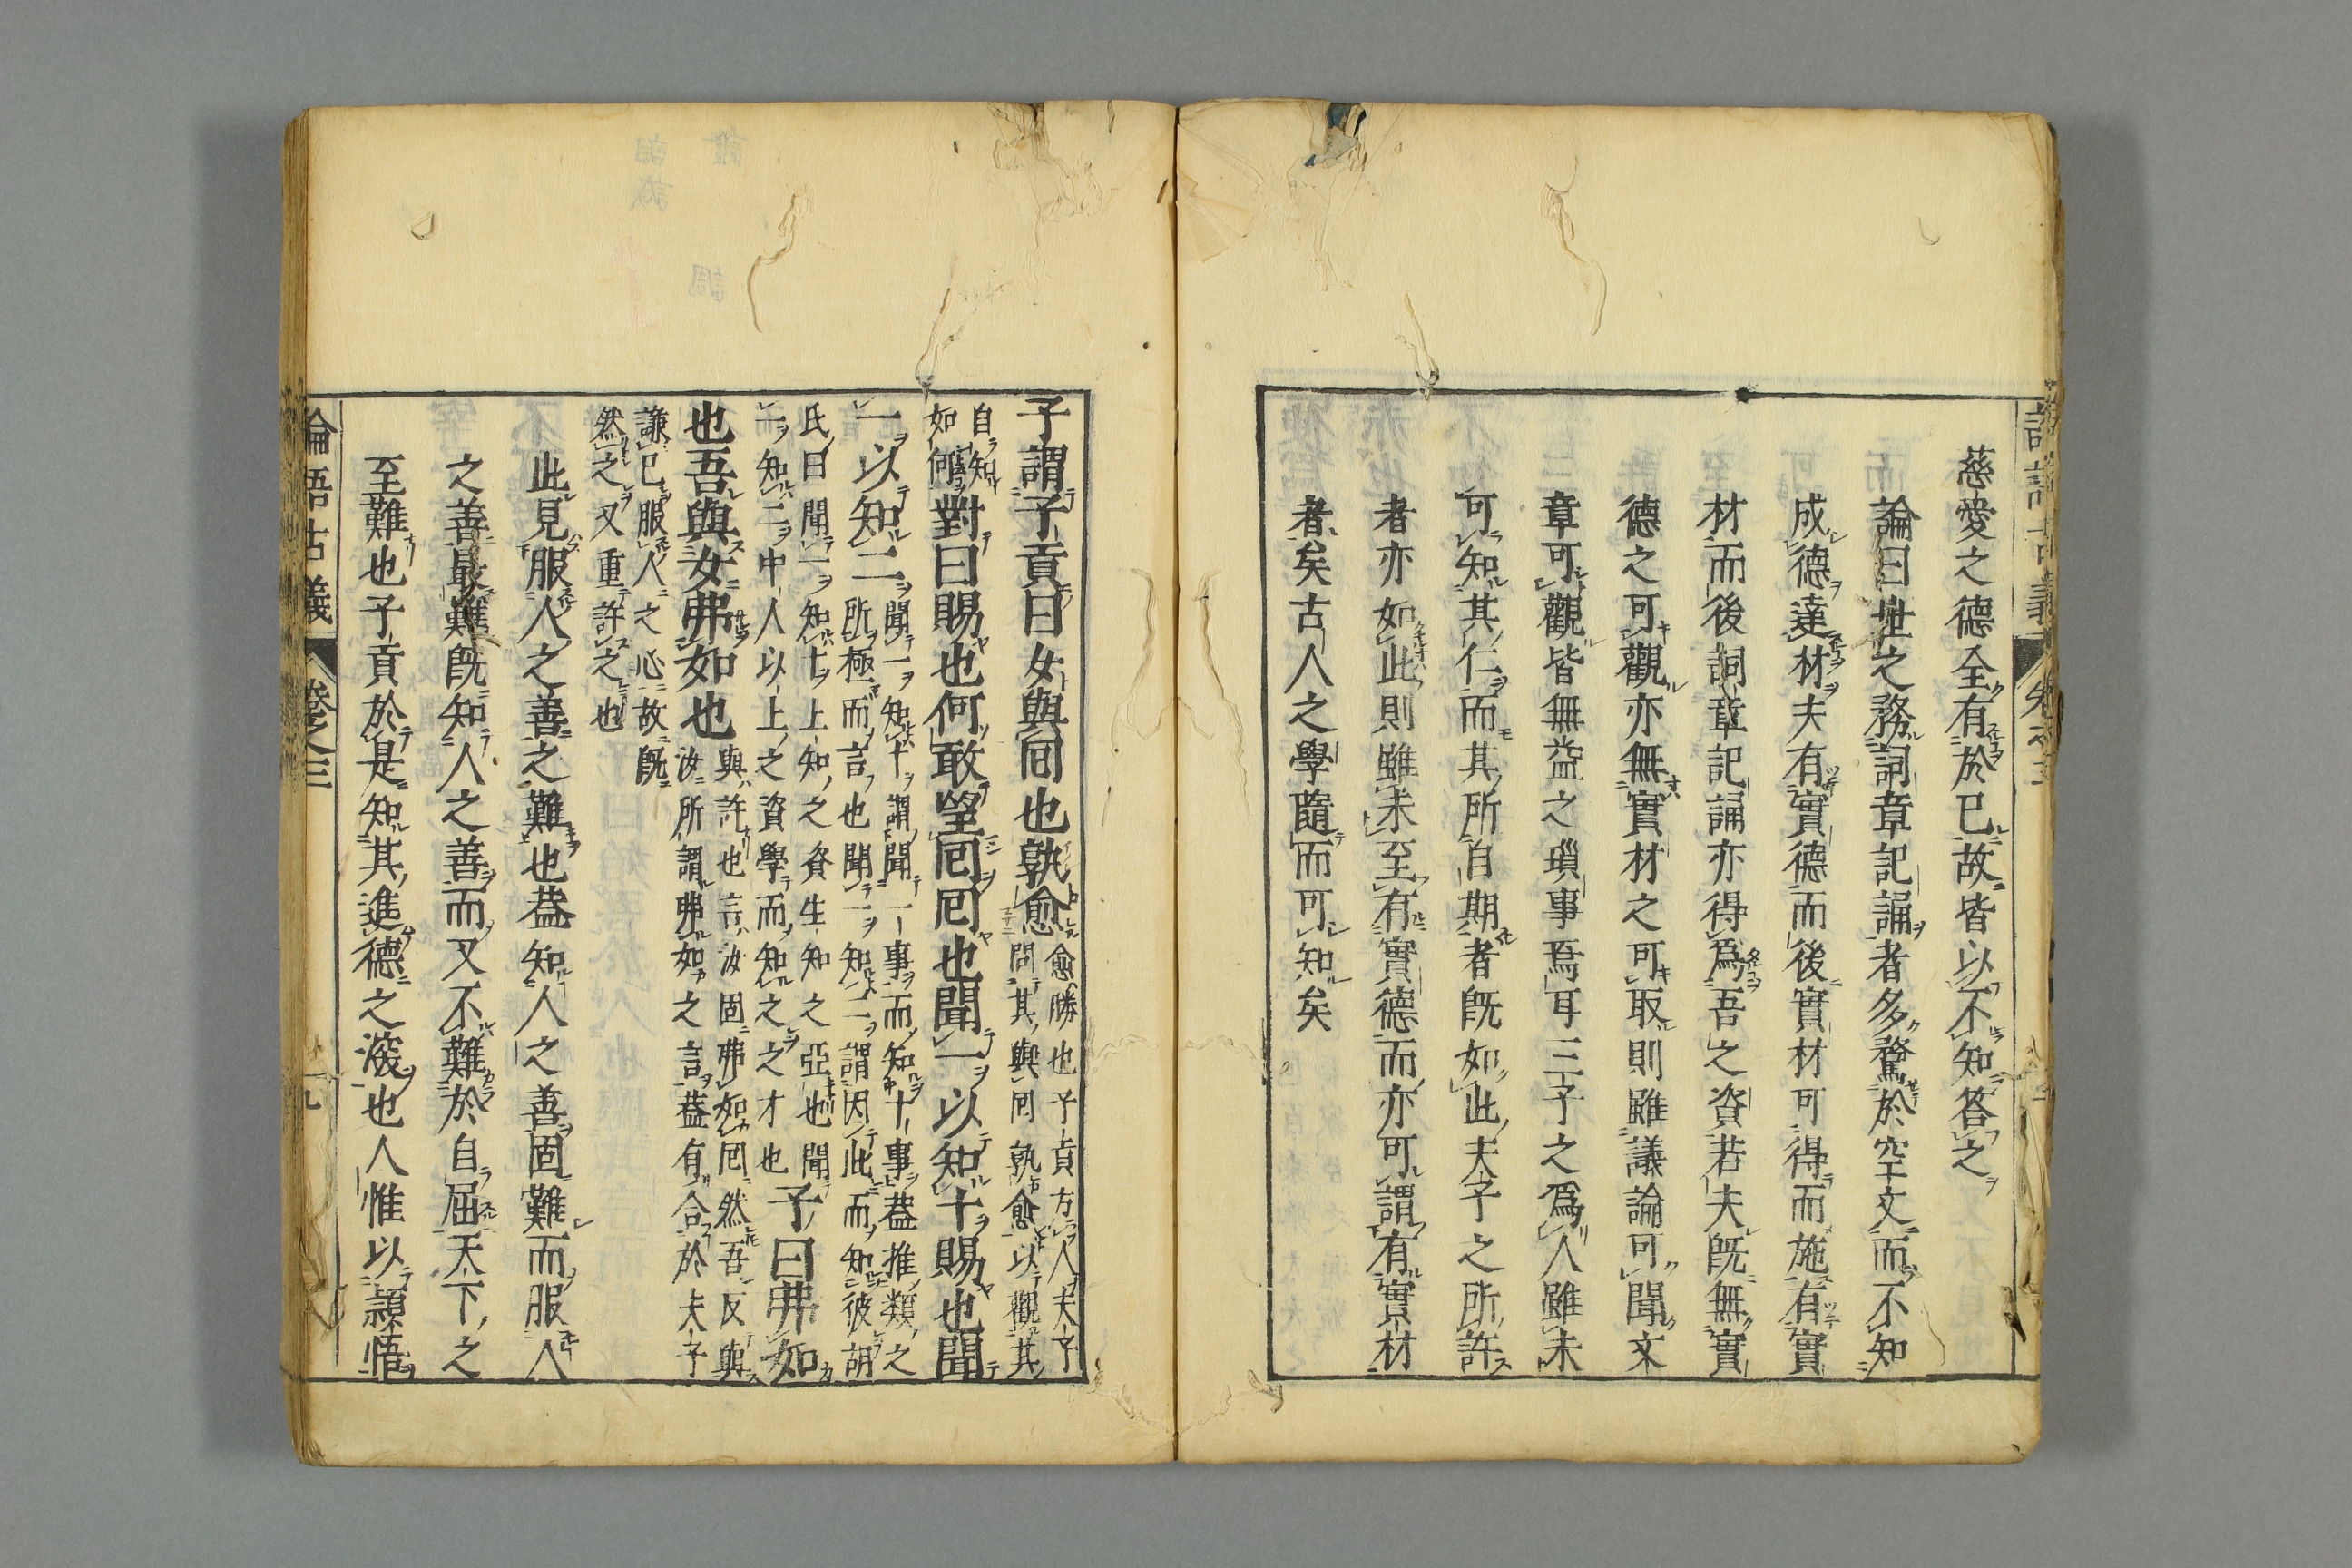 慈愛之德全有於已故皆以不知答之
論曰世之務詞章記誦者多騖於空文而不知
成德達材夫有實德而後實材可得而施有實
材而後詞章記誦亦得爲吾之資若夫既無實
德之可觀亦無實材之可取則雖議論可聞文
章可觀皆無益之瑣事焉耳三子之爲人雖未
可知其仁而其所自期者既如此夫子之所許
者亦如此則雖未至有實德而亦可謂有實材
者矣古人之學隨而可知矣
子謂子貢曰女與回也孰愈
愈勝也子貢方人夫子
問其與回孰愈以觀其
自知
如何
對曰賜也何敢望回回也聞一以知十賜也聞
一以知二
聞一知十謂聞一事而知十事葢推類之
所極而言也聞一知二謂因此而知彼胡
氏曰聞一知十上知之資生知之亞也聞
一知二中人以上之資學而知之之才也
子曰弗如
也吾與女弗如也
與許也言汝固弗如回然吾反與
汝所謂弗如之言葢有合於夫子
謙已服人之心故既
然之又重許之也
此見服人之善之難也葢知人之善固難而服人
之善最難既知人之善而又不難於自屈天下之
至難也子貢於是知其進德之深也人惟以頴悟
論語古義 卷之三 十九